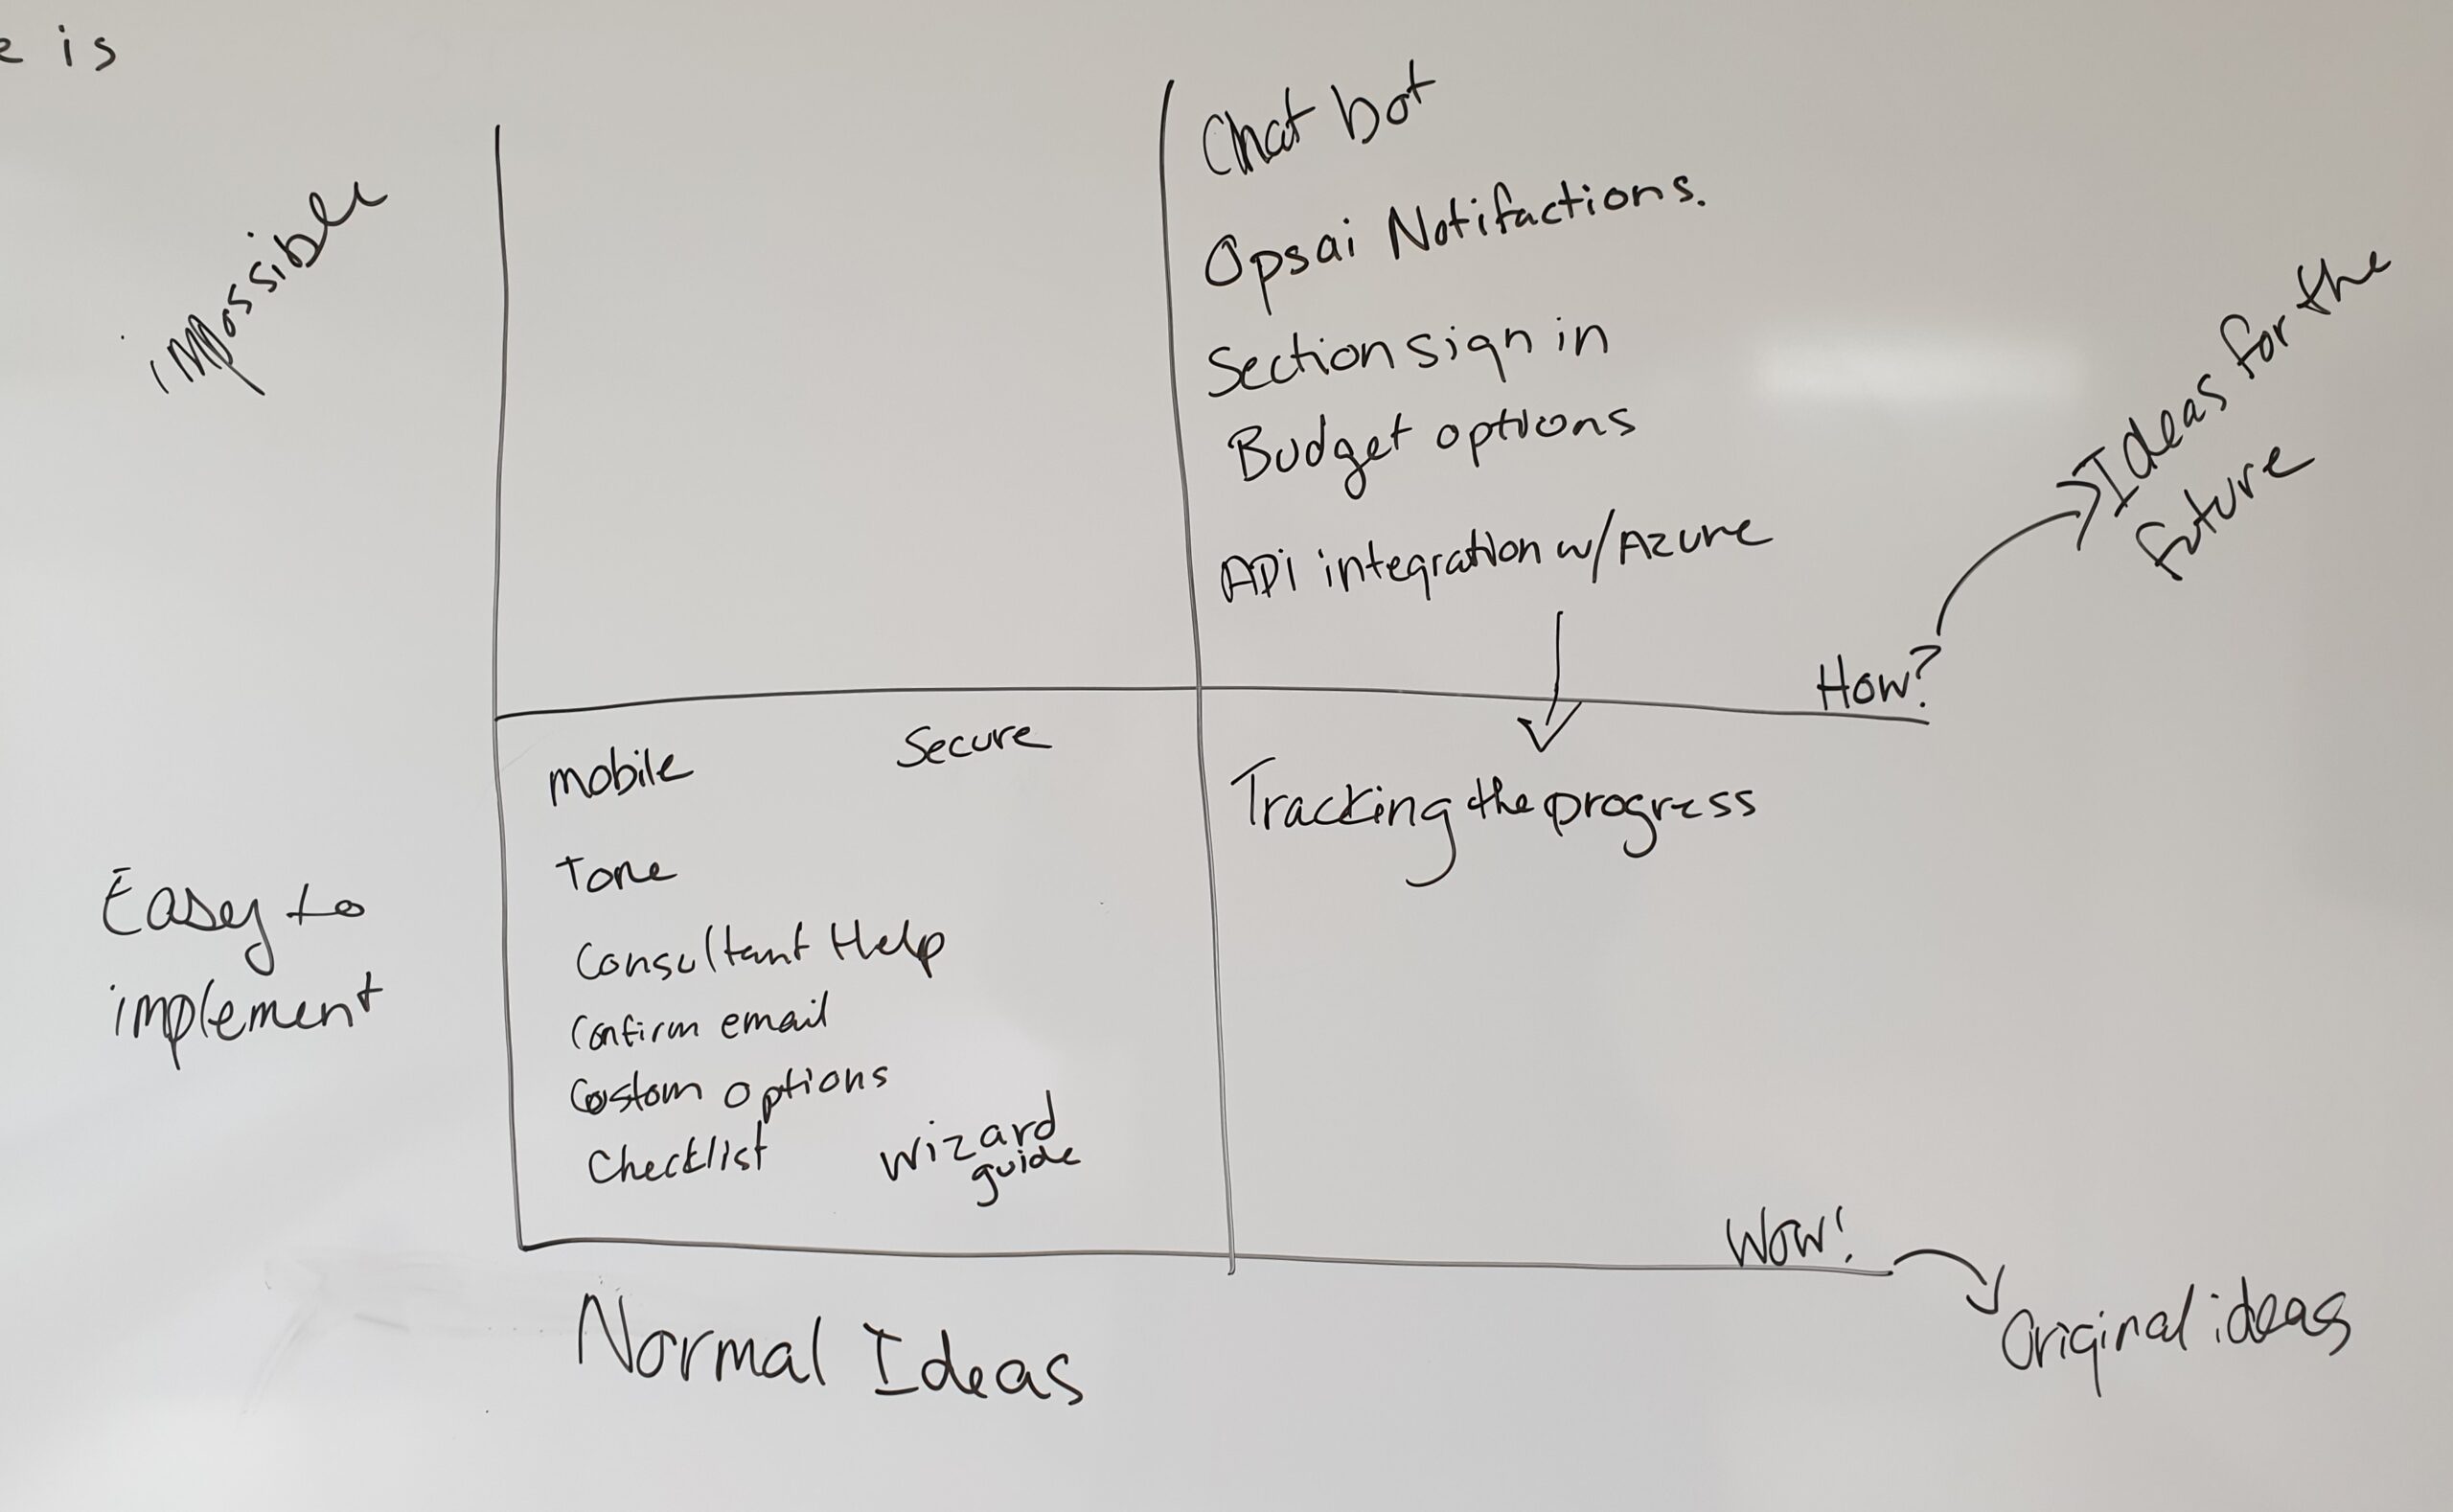 e is
impossible
Chat bot
Opsai Notifactions.
Section sign in
Budget options
API integration w/Azure
How?
Ideas for the
future
mobile
Secure
Tone
Consultant Help
Confirm email
Custom options
Checklist
wizard
guide
Tracking the progress
Easy to
implement
Wow!
Original ideas
Normal Ideas